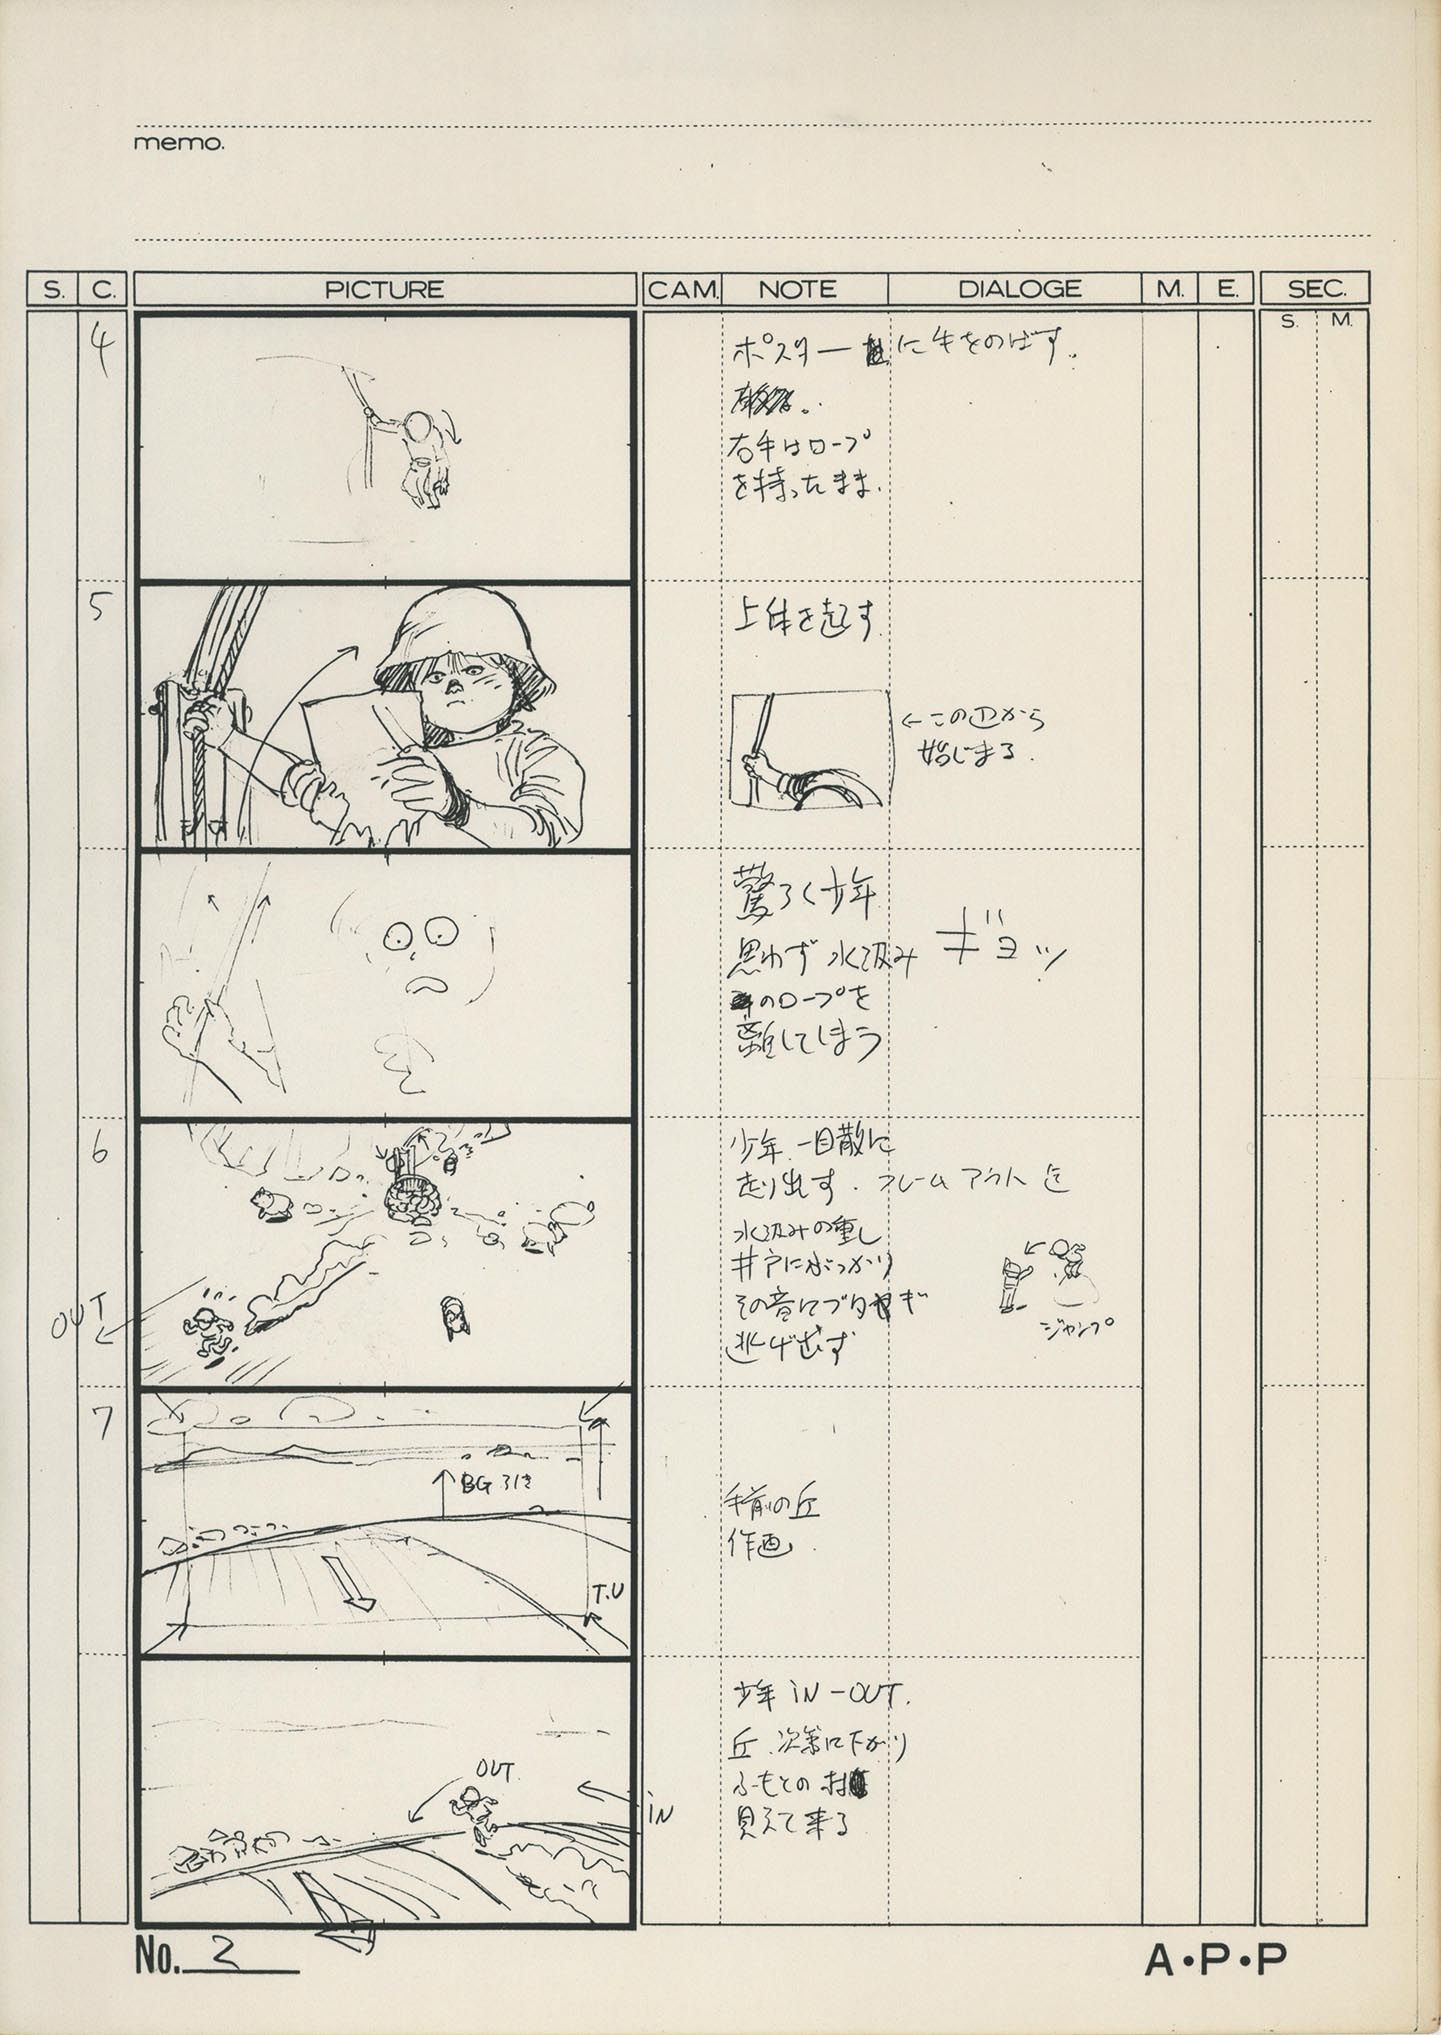 memo.
S. C. PICTURE CAM. NOTE DIALOGE M. E. SEC.
S. M.
4
ポスターに手をのばす.
右手はロープ
を持ったまま.
5
上体を起す.
←この辺から
始じまる.
驚ろく少年
思わず水汲み
のロープを
離してしまう
ギョッ
6
少年.一目散に
走り出す.フレームアウト
水汲みの重し
井戸にぶっかり
その音にブタ
逃げ出す
ジャンプ
OUT
7
BG引き
T.U
手前の丘
作画.
少年 iN-OUT.
丘.次第に下がり
ふもとの村
見えて来る
OUT
iN
No. 2
A・P・P